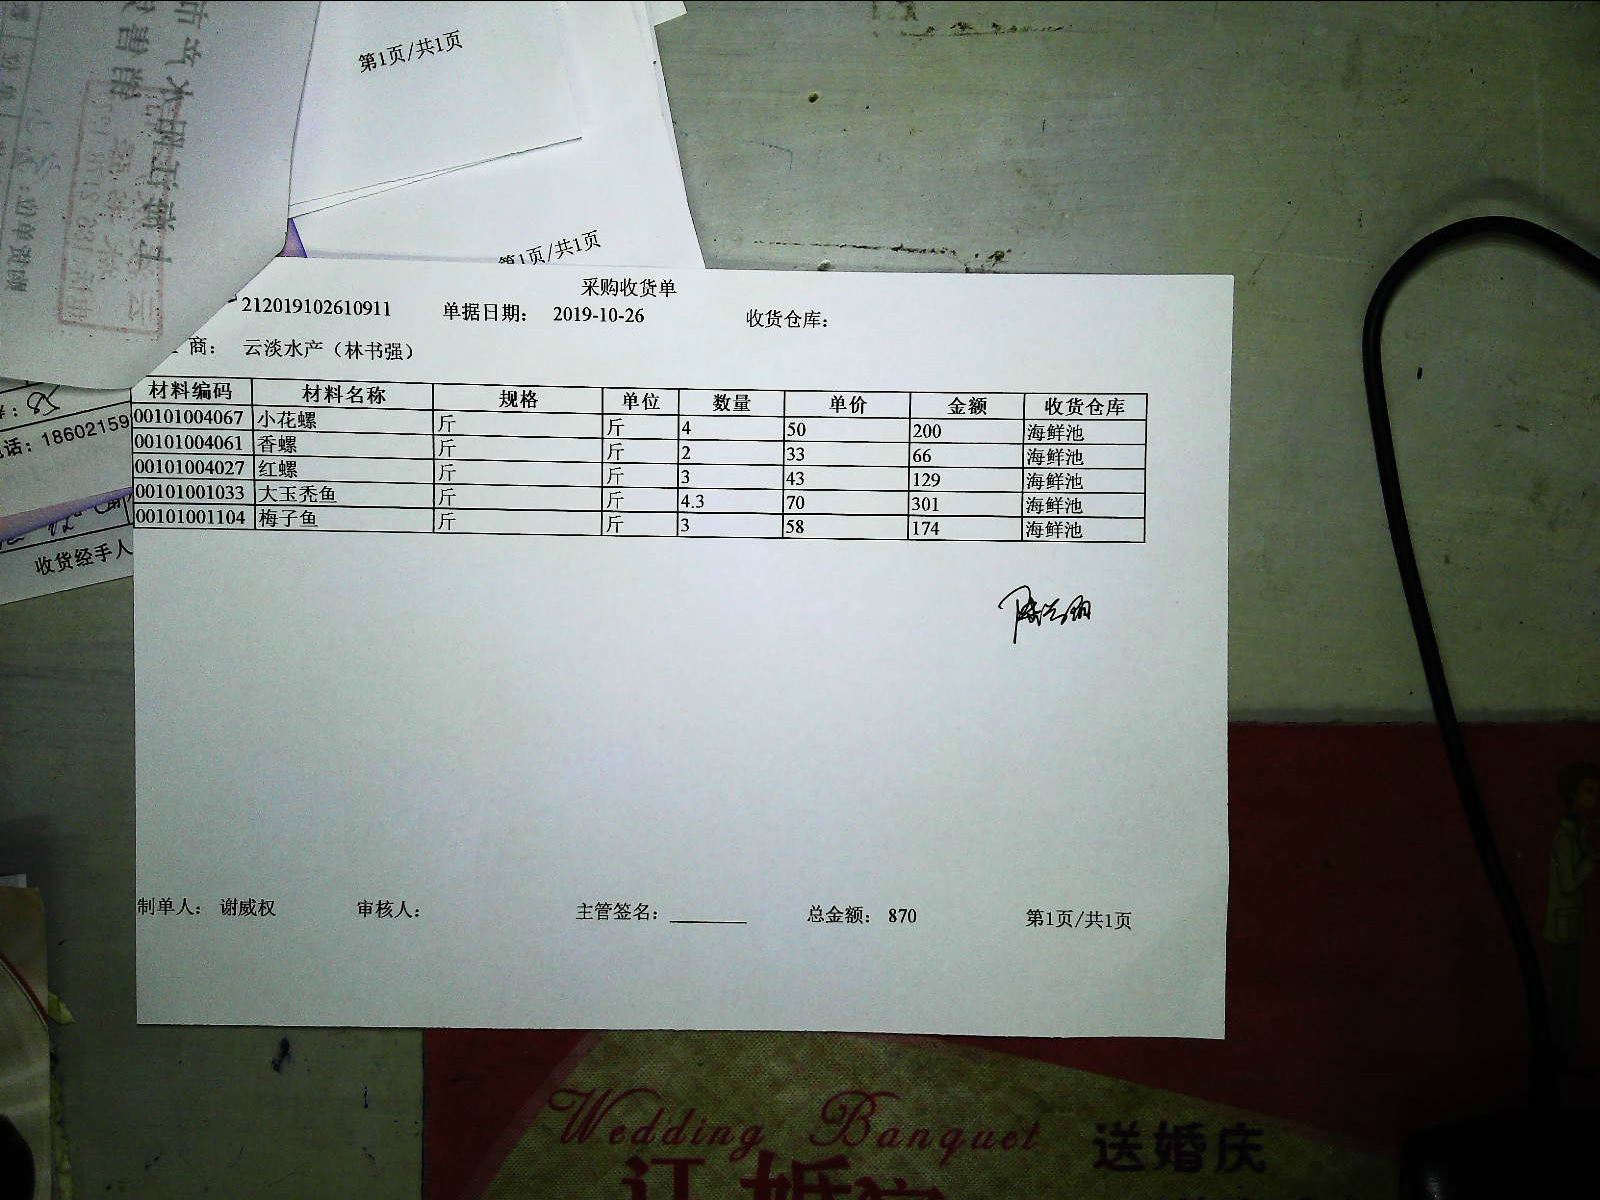 第1页/共1页
第1页/共1页
采购收货单
212019102610911 单据日期: 2019-10-26 收货仓库:
商: 云淡水产（林书强）
材料编码 材料名称 规格 单位 数量 单价 金额 收货仓库
00101004067 小花螺 斤 斤 4 50 200 海鲜池
00101004061 香螺 斤 斤 2 33 66 海鲜池
00101004027 红螺 斤 斤 3 43 129 海鲜池
00101001033 大玉秃鱼 斤 斤 4.3 70 301 海鲜池
00101001104 梅子鱼 斤 斤 3 58 174 海鲜池
话: 18602159
收货经手人
制单人: 谢威权 审核人: 主管签名: 总金额: 870 第1页/共1页
Wedding Banquet 送婚庆
订婚宴